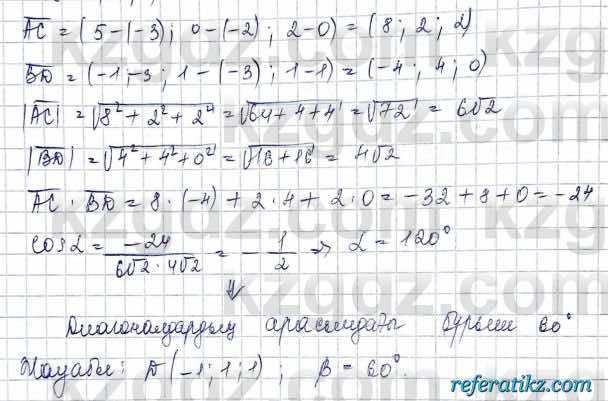 AC = (5-(-3); 0-(-2); 2-0) = (8; 2; 2)
BD = (-1-3; 1-(-3); 1-1) = (-4; 4; 0)
|AC| = √8²+2²+2² = √64+4+4 = √72 = 6√2
|BD| = √4²+4²+0² = √16+16 = 4√2
AC · BD = 8·(-4) + 2·4 + 2·0 = -32+8+0 = -24
cos α = -24 / 6√2·4√2 = -1/2 => α = 120°
⇓
Диагональдардың арасындағы бұрыш 60°
Жауабы: D(-1; 1; 1); β = 60°.
referatikz.com